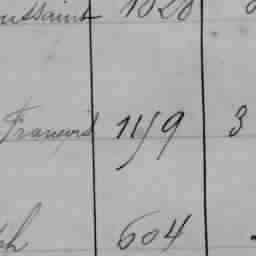 oussaint 1828
François 1159 3
ph 604